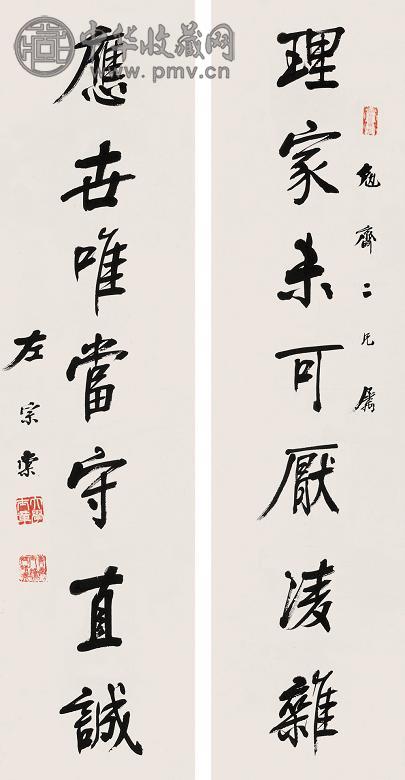 中华收藏网
www.pmv.cn
勉齋二兄屬
理家未可厭凌雜
應世唯當守直誠
左宗棠